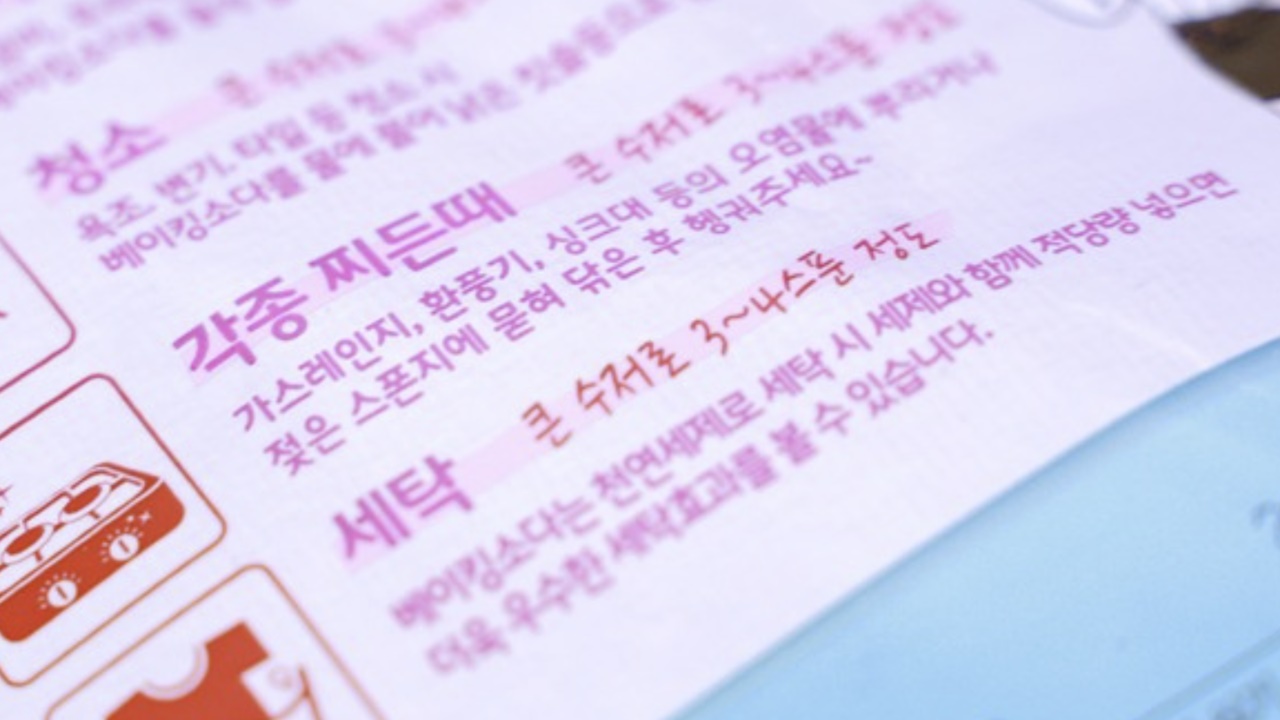 청소
욕조. 변기. 타일 등 청소 시
베이킹소다를 물에 풀어 낡은 칫솔등으로
각종 찌든때 큰 수저로 3~4스푼 정도
가스레인지, 환풍기, 싱크대 등의 오염물에 뿌리거나
젖은 스폰지에 묻혀 닦은 후 헹궈주세요~
세탁 큰 수저로 3~4스푼 정도
베이킹소다는 천연세제로 세탁 시 세제와 함께 적당량 넣으면
더욱 우수한 세탁효과를 볼 수 있습니다.